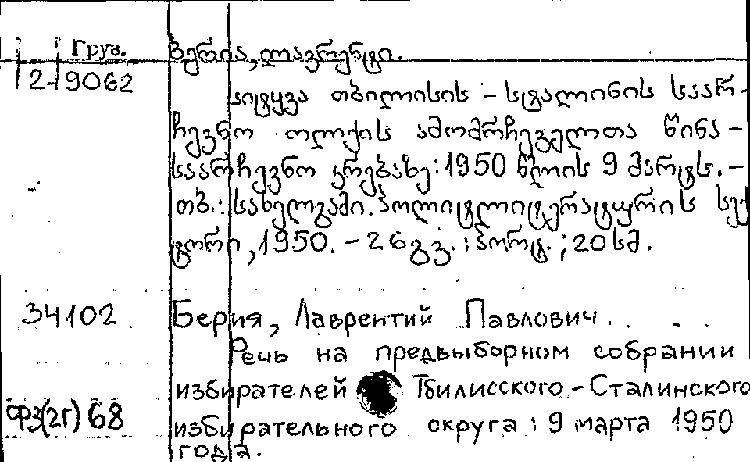 Груз. ბერია, ლავრენტი.
2-9062
სიტყვა თბილისის - სტალინის საარ-
ჩევნო ოლქის ამომრჩეველთა წინა-
საარჩევნო კრებაზე: 1950 წლის 9 მარტს. -
თბ.: სახელგამი. პოლიტლიტერატურის სექ
ტორი, 1950. - 26 გვ. ; პორტ. ; 20 სმ.
34102 Берия, Лаврентий Павлович.
Речь на предвыборном собрании
избирателей Тбилисского-Сталинского
Фз(2г)68 избирательного округа: 9 марта 1950
года.